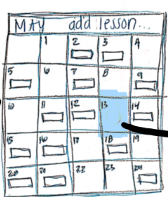 MAY add lesson...
1 2 3 4
5 6 7 8 9
10 11 12 13 14
15 16 17 18 19
20 22 23 24